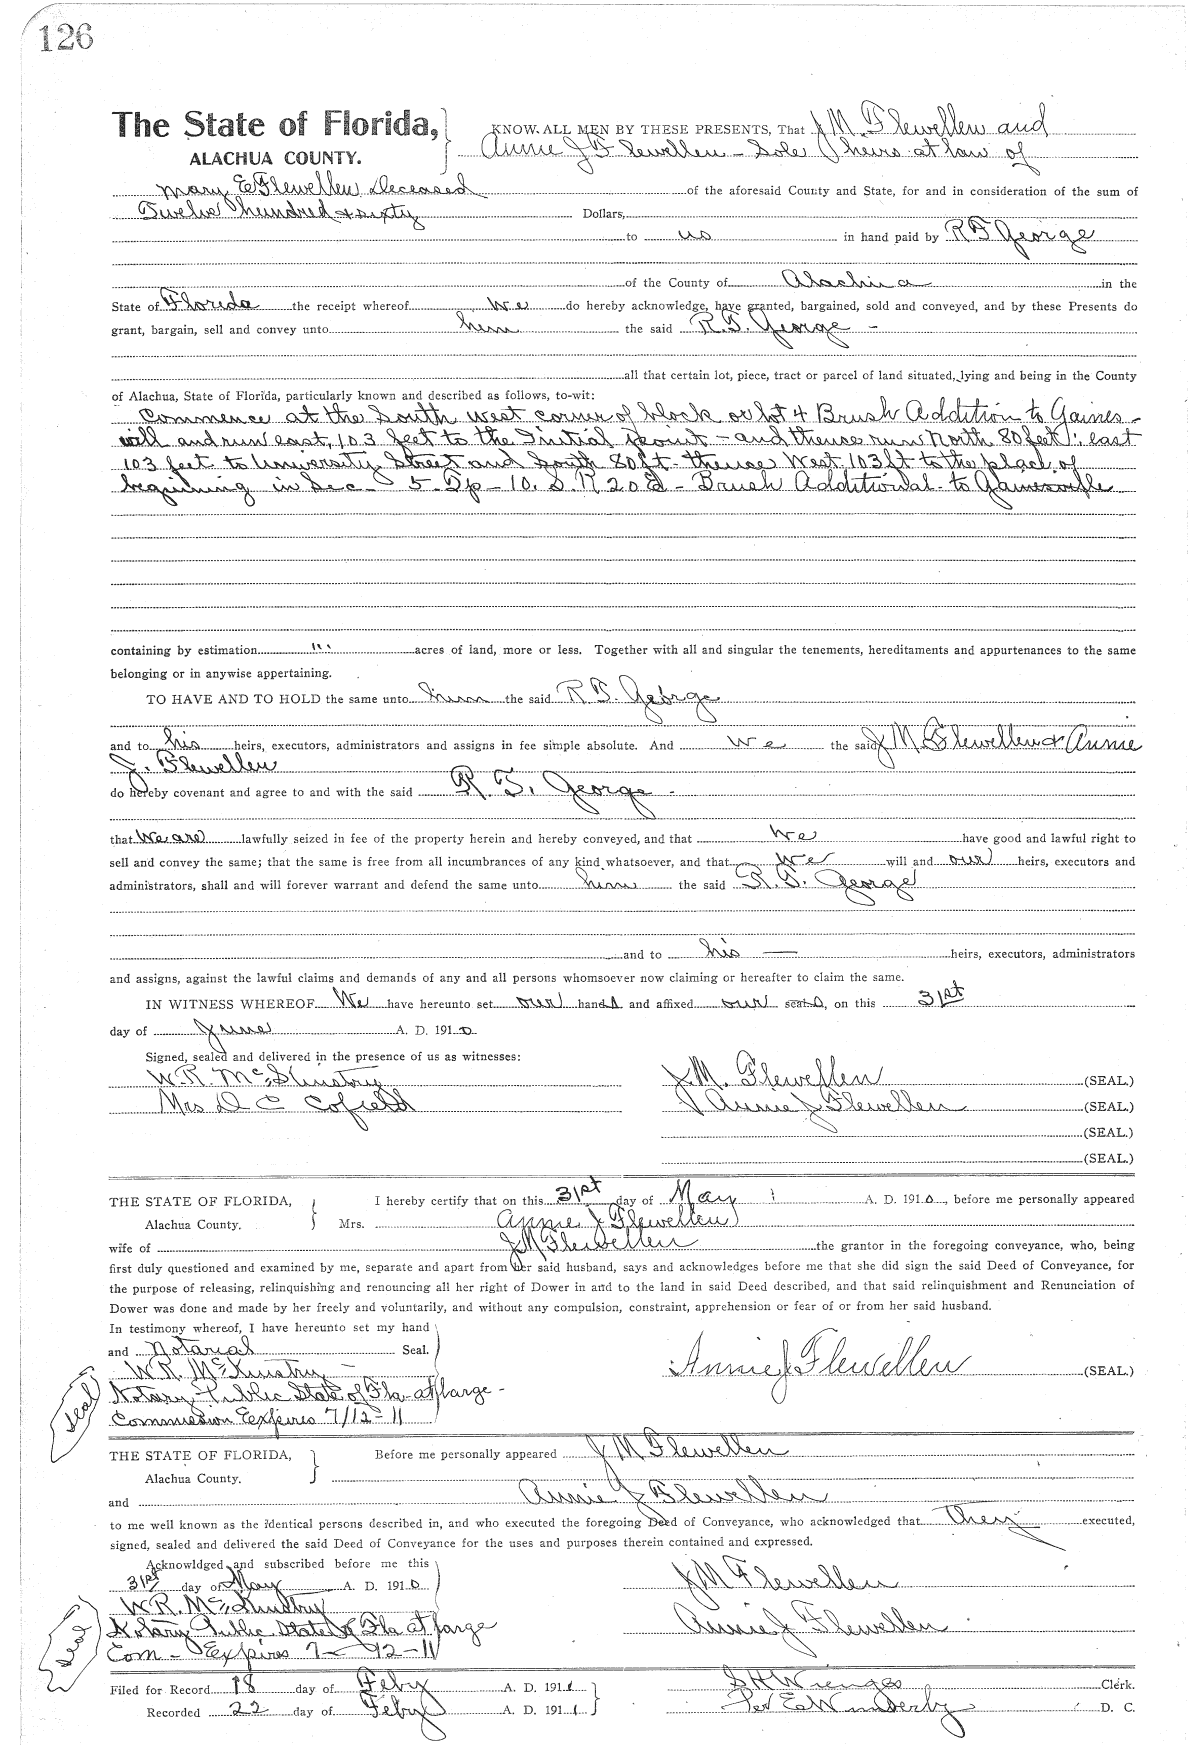 126
The State of Florida, KNOW ALL MEN BY THESE PRESENTS, That J M. Flewellen and
ALACHUA COUNTY. Annie J Flewellen - Sole heirs at law of
Mary E Flewellen Deceased of the aforesaid County and State, for and in consideration of the sum of
Twelve hundred & sixty Dollars,
to us in hand paid by R F George
of the County of Alachua in the
State of Florida the receipt whereof we do hereby acknowledge, have granted, bargained, sold and conveyed, and by these Presents do
grant, bargain, sell and convey unto him the said R. F. George -
all that certain lot, piece, tract or parcel of land situated, lying and being in the County
of Alachua, State of Florida, particularly known and described as follows, to-wit:
Commence at the South west corner of block or lot 4 Brush Addition to Gaines-
vill and run east, 103 feet to the Initial point - and thence run North 80 feet: east
103 feet to University Street and South 80 ft - thence West 103 ft to the place of
beginning in Sec - 5 - Tp - 10. S. R 20 E - Brush Additional - to Gainesville
containing by estimation ''' acres of land, more or less. Together with all and singular the tenements, hereditaments and appurtenances to the same
belonging or in anywise appertaining.
TO HAVE AND TO HOLD the same unto him the said R. F. George
and to his heirs, executors, administrators and assigns in fee simple absolute. And we the said J M. Flewellen & Annie
J. Flewellen
do hereby covenant and agree to and with the said R. F. George -
that We are lawfully seized in fee of the property herein and hereby conveyed, and that We have good and lawful right to
sell and convey the same; that the same is free from all incumbrances of any kind whatsoever, and that We will and our heirs, executors and
administrators, shall and will forever warrant and defend the same unto him the said R. F. George
and to his — heirs, executors, administrators
and assigns, against the lawful claims and demands of any and all persons whomsoever now claiming or hereafter to claim the same.
IN WITNESS WHEREOF We have hereunto set our hands and affixed our seals, on this 31st
day of June A. D. 1910
Signed, sealed and delivered in the presence of us as witnesses:
W. R. McKinstry J M. Flewellen (SEAL.)
Mrs D C Cofield Annie J Flewellen (SEAL.)
(SEAL.)
(SEAL.)
THE STATE OF FLORIDA, I hereby certify that on this 31st day of May A. D. 1910, before me personally appeared
Alachua County. Mrs. Annie J Flewellen
wife of J M Flewellen the grantor in the foregoing conveyance, who, being
first duly questioned and examined by me, separate and apart from her said husband, says and acknowledges before me that she did sign the said Deed of Conveyance, for
the purpose of releasing, relinquishing and renouncing all her right of Dower in and to the land in said Deed described, and that said relinquishment and Renunciation of
Dower was done and made by her freely and voluntarily, and without any compulsion, constraint, apprehension or fear of or from her said husband.
In testimony whereof, I have hereunto set my hand
and Notarial Seal.
W. R. McKinstry - Annie J Flewellen (SEAL.)
Seal Notary Public State of Fla - at large -
Commission Expires 7/12-11
THE STATE OF FLORIDA, Before me personally appeared J M Flewellen
Alachua County.
and Annie J Flewellen
to me well known as the identical persons described in, and who executed the foregoing Deed of Conveyance, who acknowledged that They executed,
signed, sealed and delivered the said Deed of Conveyance for the uses and purposes therein contained and expressed.
Acknowldged and subscribed before me this
31st day of May A. D. 1910 J M Flewellen
W. R. McKinstry
Seal Notary Public State of Fla at large Annie J Flewellen
Com - Expires 7-12-11
Filed for Record 18 day of Feby A. D. 1911 S H Wienges Clerk.
Recorded 22 day of Feby A. D. 1911 Per E W D. C.